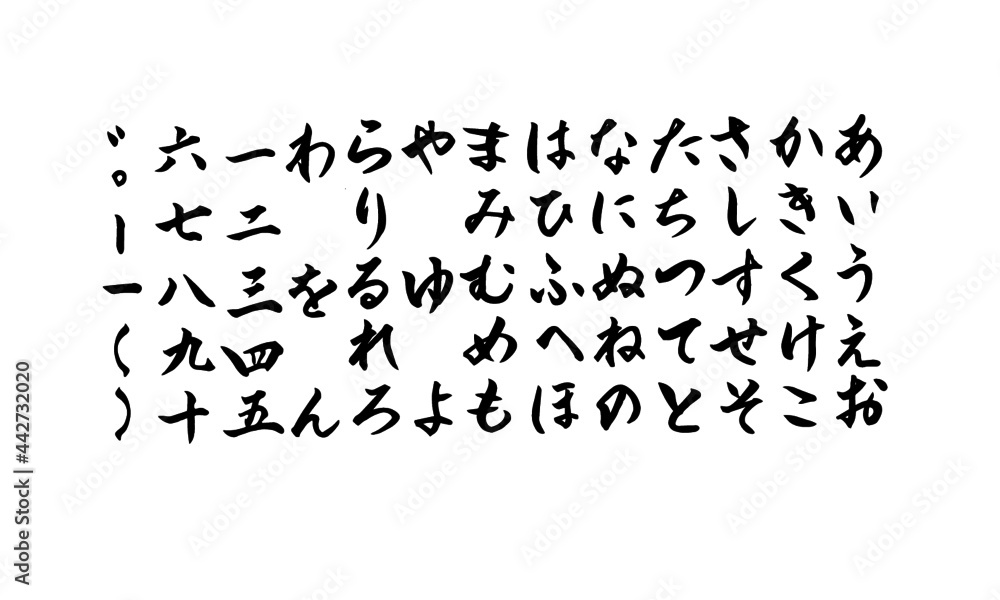 あいうえお
かきくけこ
さしすせそ
たちつてと
なにぬねの
はひふへほ
まみむめも
やゆよ
らりるれろ
わをん
一二三四五
六七八九十
゛。｜ー（）
Adobe Stock | #442732020